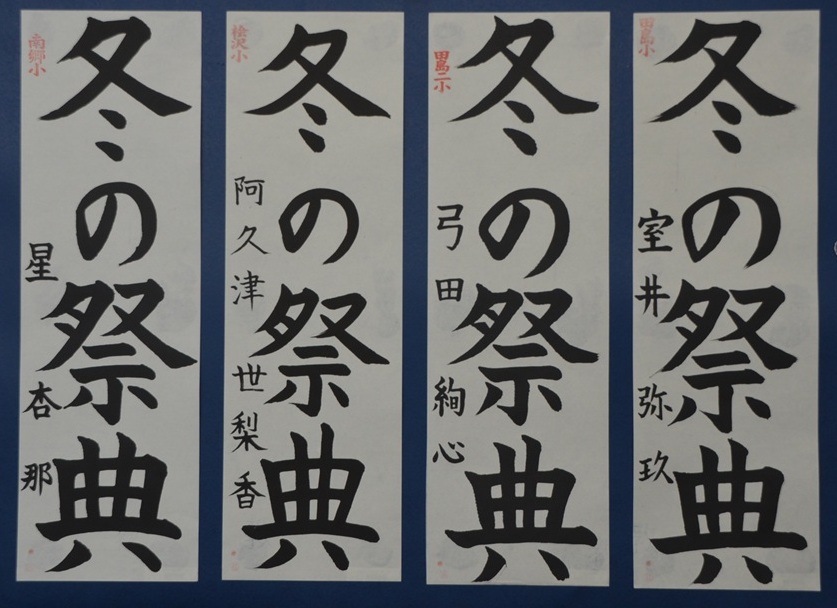 田島小
冬の祭典
室井 弥玖
田島二小
冬の祭典
弓田 絢心
桧沢小
冬の祭典
阿久津 世梨香
南郷小
冬の祭典
星 杏那